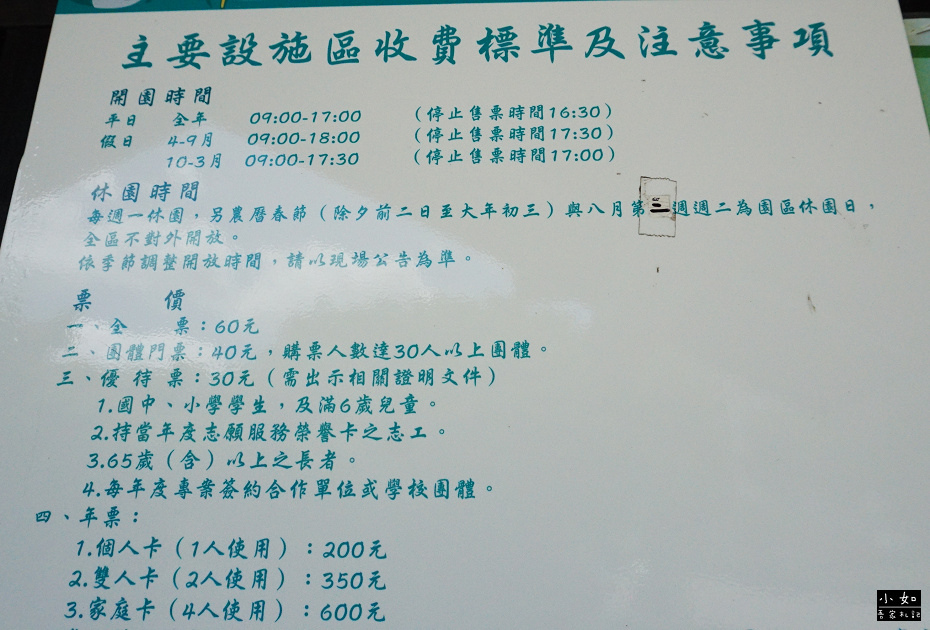 主要設施區收費標準及注意事項
開園時間
平日 全年 09:00-17:00 (停止售票時間16:30)
假日 4-9月 09:00-18:00 (停止售票時間17:30)
10-3月 09:00-17:30 (停止售票時間17:00)
休園時間
每週一休園，另農曆春節（除夕前二日至大年初三）與八月第三週週二為園區休園日，
全區不對外開放。
依季節調整開放時間，請以現場公告為準。
票 價
一、全 票：60元
二、團體門票：40元，購票人數達30人以上團體。
三、優 待 票：30元（需出示相關證明文件）
1.國中、小學學生，及滿6歲兒童。
2.持當年度志願服務榮譽卡之志工。
3.65歲（含）以上之長者。
4.每年度專案簽約合作單位或學校團體。
四、年票：
1.個人卡（1人使用）：200元
2.雙人卡（2人使用）：350元
3.家庭卡（4人使用）：600元
小如
吾家札記